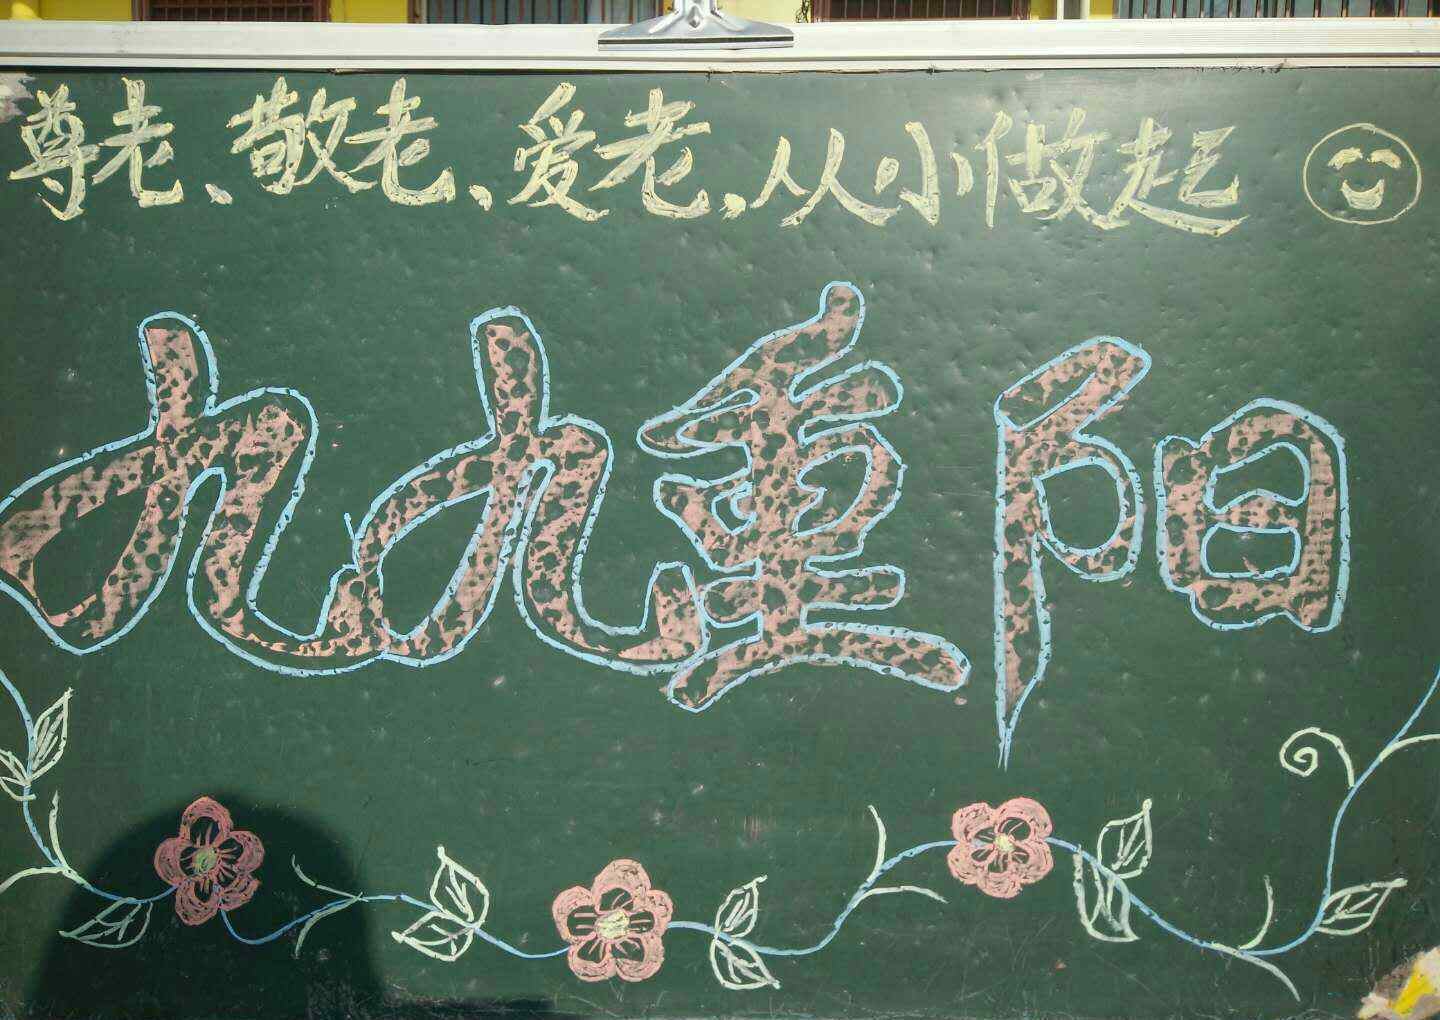 尊老、敬老、爱老、从小做起
九九重阳